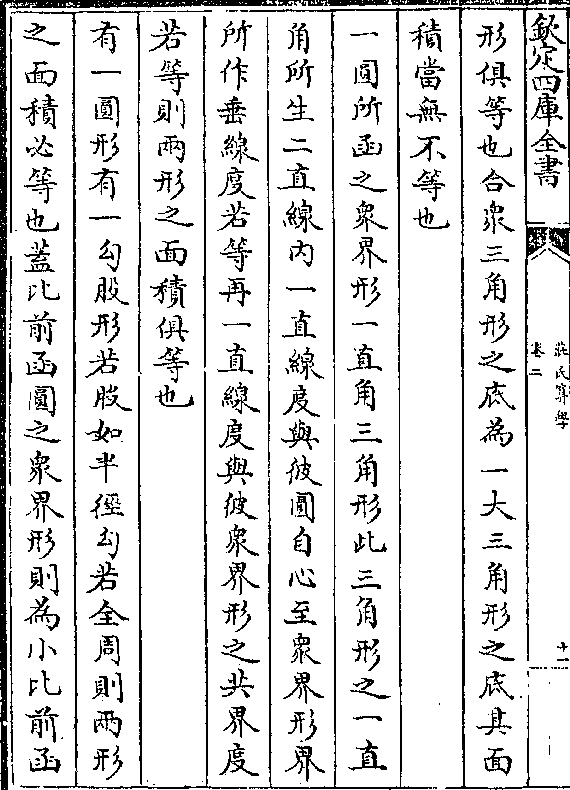 欽定四庫全書
莊氏算學
卷二
十一
形俱等也合衆三角形之底為一大三角形之底其面
積當無不等也
一圓所函之衆界形一直角三角形此三角形之一直
角所生二直線内一直線度與彼圓自心至衆界形界
所作垂線度若等再一直線度與彼衆界形之共界度
若等則兩形之面積俱等也
有一圓形有一勾股形若股如半徑勾若全周則兩形
之面積必等也蓋比前函圓之衆界形則為小比前函